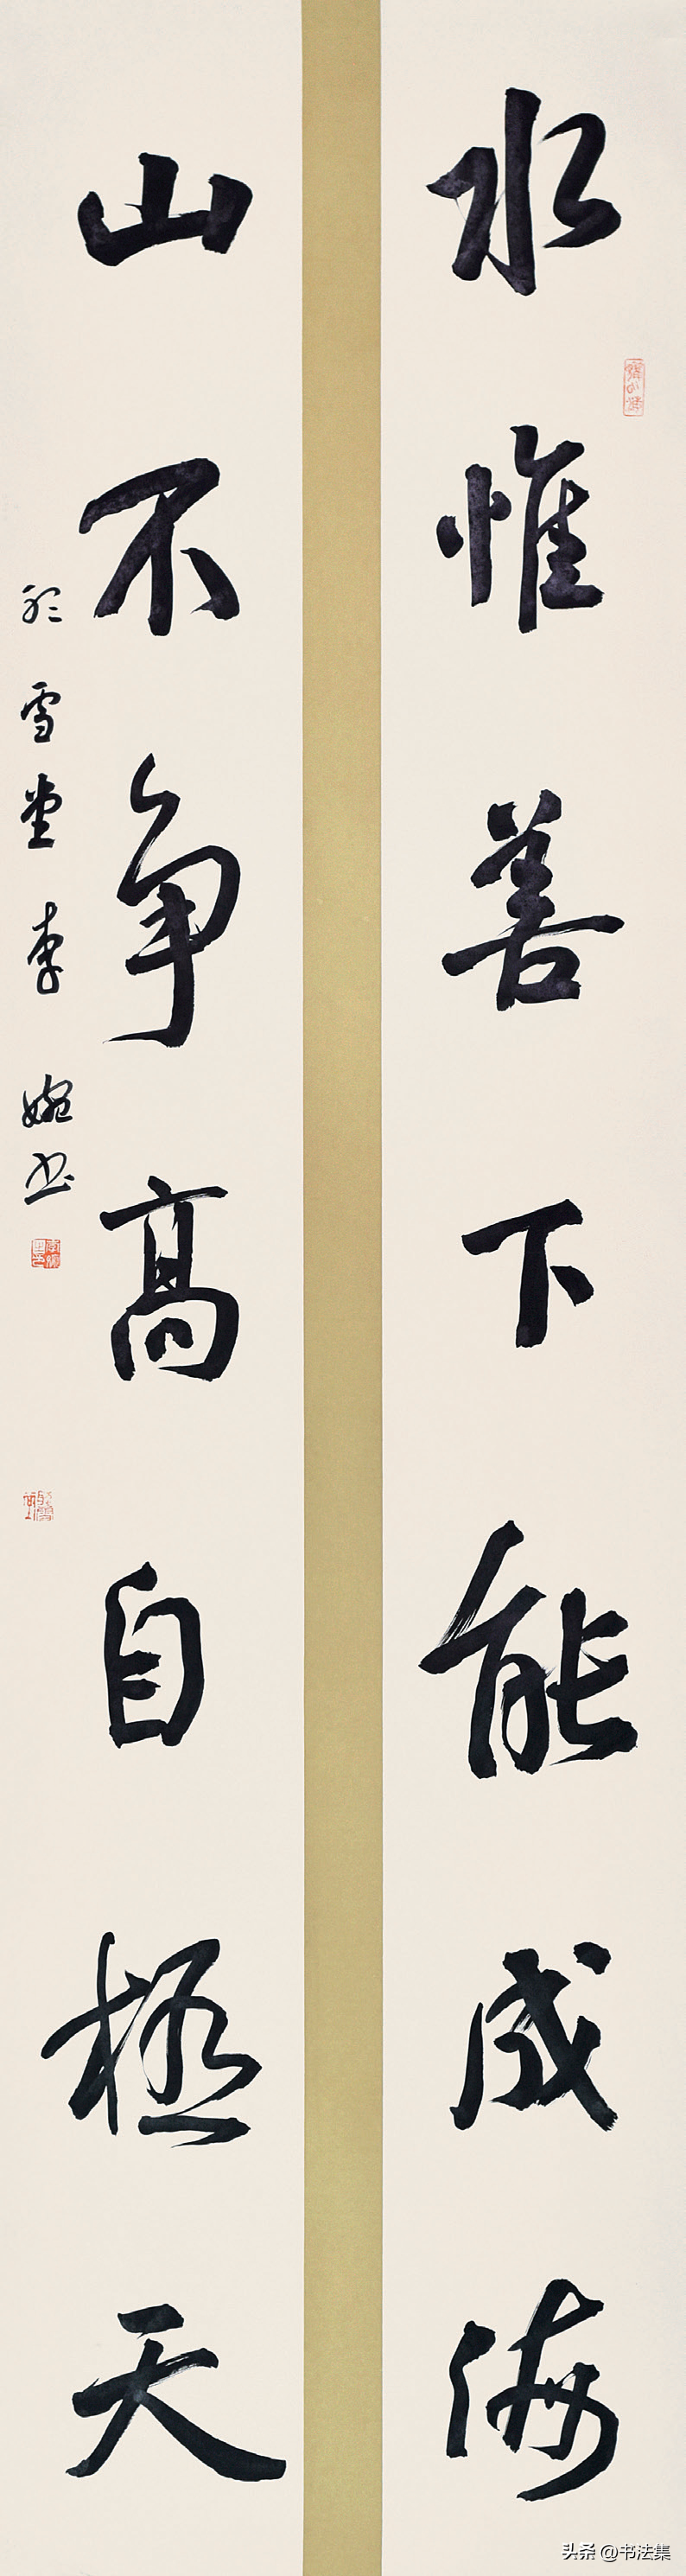 水惟善下能成海
山不争高自极天
于雪堂 李婉书
头条 @书法集